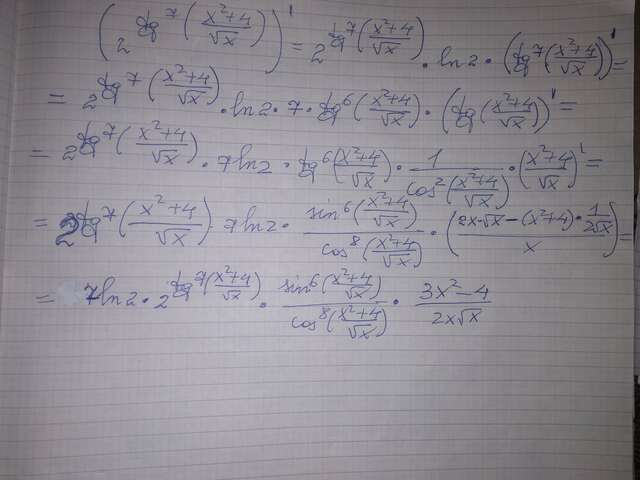 (2^{tg^7((x²+4)/√x)})' = 2^{tg^7((x²+4)/√x)} · ln2 · (tg^7((x²+4)/√x))' =
= 2^{tg^7((x²+4)/√x)} · ln2 · 7 · tg^6((x²+4)/√x) · (tg((x²+4)/√x))' =
= 2^{tg^7((x²+4)/√x)} · 7ln2 · tg^6((x²+4)/√x) · 1/(cos²((x²+4)/√x)) · ((x²+4)/√x)' =
= 2^{tg^7((x²+4)/√x)} · 7ln2 · (sin^6((x²+4)/√x))/(cos^8((x²+4)/√x)) · ((2x·√x − (x²+4)·1/(2√x))/x) =
= 7ln2 · 2^{tg^7((x²+4)/√x)} · (sin^6((x²+4)/√x))/(cos^8((x²+4)/√x)) · (3x²−4)/(2x√x)